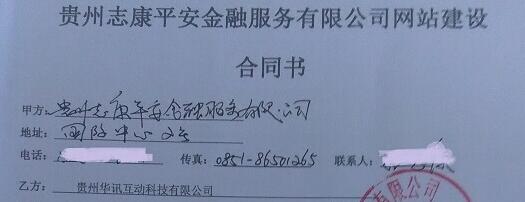 贵州志康平安金融服务有限公司网站建设
合同书
甲方：贵州志康平安金融服务有限公司
地址：国际中心2号
电话： 传真：0851-86501265 联系人：
乙方： 贵州华讯互动科技有限公司
有限公司